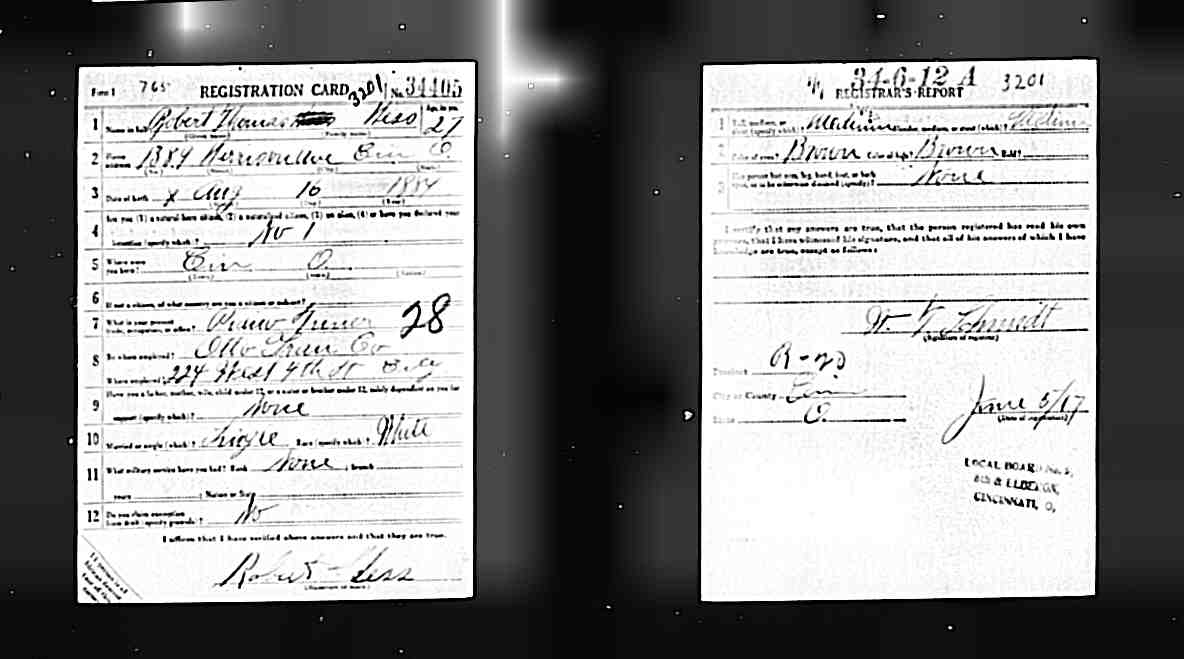 Form 1 765 REGISTRATION CARD 3201 No. 34405
1 Name in full Robert Thomas Hess Age, in yrs. 27
(Given name) (Family name)
2 Home address 1384 Harrison Ave Cin O.
(No.) (Street) (City) (State)
3 Date of birth Aug 16 1889
(Month) (Day) (Year)
4 Are you (1) a natural born citizen, (2) a naturalized citizen, (3) an alien, (4) or have you declared your
intention (specify which)? No 1
5 Where were you born? Cin O.
(Town) (State) (Nation)
6 If not a citizen, of what country are you a citizen or subject?
7 What is your present trade, occupation, or office? Piano Tuner 28
8 By whom employed? Otto Co
Where employed? 224 West 4th St City
9 Have you a father, mother, wife, child under 12, or a sister or brother under 12, solely dependent on you for
support (specify which)? None
10 Married or single (which)? Single Race (specify which)? White
11 What military service have you had? Rank None ; branch
years ; Nation or State
12 Do you claim exemption from draft (specify grounds)? No
I affirm that I have verified above answers and that they are true.
Robert Hess
(Signature or mark)
34-6-12 A 3201
REGISTRAR'S REPORT
1 Tall, medium, or short (specify which)? Medium Slender, medium, or stout (which)? Medium
2 Color of eyes? Brown Color of hair? Brown Bald?
3 Has person lost arm, leg, hand, foot, or both
eyes, or is he otherwise disabled (specify)? None
I certify that my answers are true, that the person registered has read his own
answers, that I have witnessed his signature, and that all of his answers of which I have
knowledge are true, except as follows:
W. F. Schmidt
(Signature of registrar)
Precinct R-20
City or County Cin
State O.
June 5/17
(Date of registration)
LOCAL BOARD No. 5,
8th & ELBERON,
CINCINNATI, O.